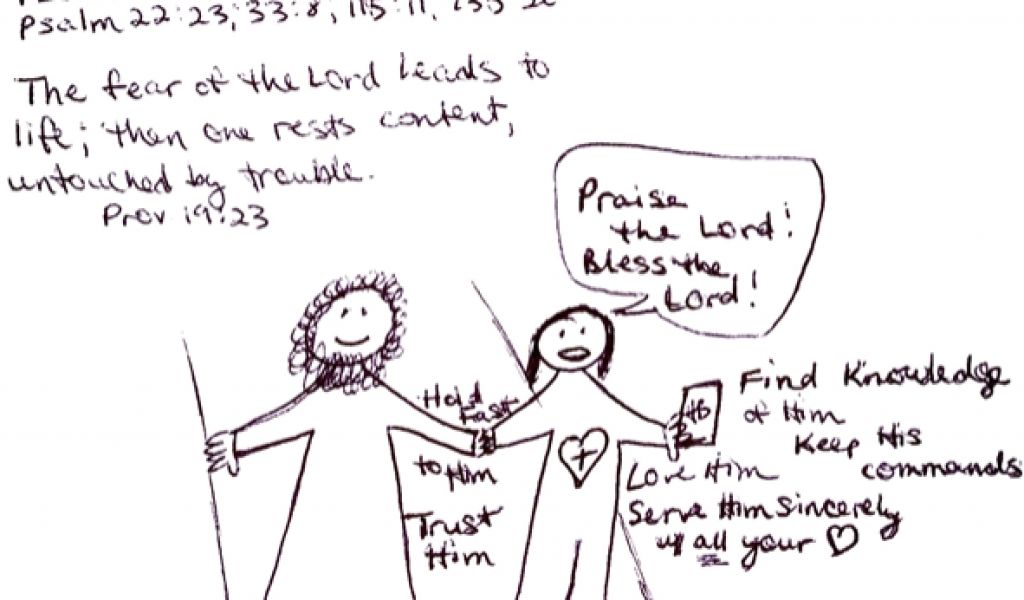 Psalm 22:23; 33:8; 115:11,
The fear of the Lord leads to
life; then one rests content,
untouched by trouble.
Prov 19:23
Praise
the Lord!
Bless the
Lord!
Hold
Fast
to Him
Trust
Him
HB
Find Knowledge
of Him
Keep His
commands
Love Him
Serve Him sincerely
w/ all your ♡